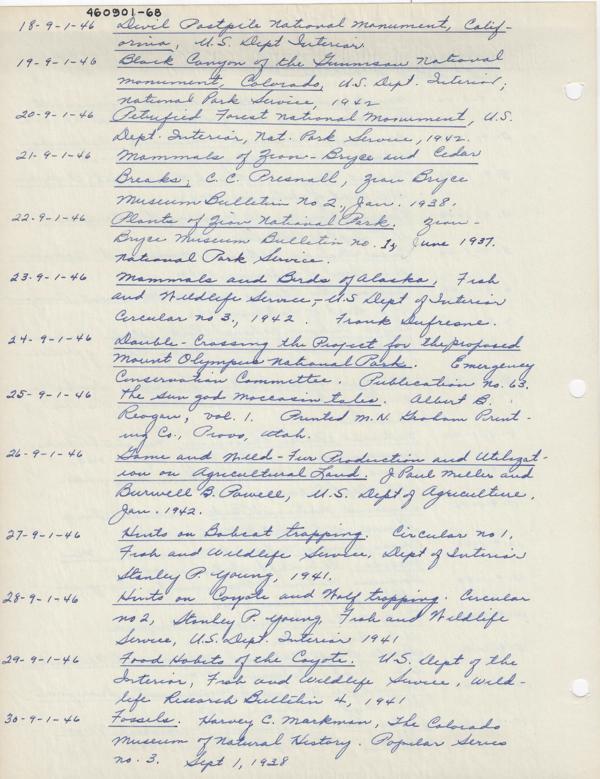 460901-68
18-9-1-46 Devil Postpile National Monument, Calif-
ornia, U.S. Dept Interior.
19-9-1-46 Black Canyon of the Gunnison National
Monument, Colorado, U.S. Dept. Interior,
National Park Service, 1942
20-9-1-46 Petrified Forest National Monument, U.S.
Dept. Interior, Nat. Park Service, 1942.
21-9-1-46 Mammals of Zion-Bryce and Cedar
Breaks, C.C. Presnall, Zion Bryce
Museum Bulletin No 2, Jan. 1938.
22-9-1-46 Plants of Zion National Park. Zion-
Bryce Museum Bulletin no. 1, June 1937.
National Park Service.
23-9-1-46 Mammals and Birds of Alaska, Fish
and Wildlife Service, - U.S Dept of Interior
Circular no 3, 1942. Frank Dufresne.
24-9-1-46 Double-Crossing the Project for the proposed
Mount Olympus National Park. Emergency
Conservation Committee. Publication No. 63.
25-9-1-46 The sun god moccasin tales. Albert B.
Reagan, vol. 1. Printed M.N. Graham Print-
ing Co., Provo, Utah.
26-9-1-46 Game and Wild-Fur Production and Utilizat-
ion on Agricultural Land. J Paul Miller and
Burwell B. Powell, U.S. Dept of Agriculture.
Jan. 1942.
27-9-1-46 Hints on Bobcat trapping. Circular no 1.
Fish and Wildlife Service, Dept of Interior
Stanley P. Young, 1941.
28-9-1-46 Hints on Coyote and Wolf trapping. Circular
no 2, Stanley P. Young, Fish and Wildlife
Service, U.S. Dept. Interior 1941
29-9-1-46 Food Habits of the Coyote. U.S. Dept of the
Interior, Fish and Wildlife Service, Wild-
life Research Bulletin 4, 1941
30-9-1-46 Fossels. Harvey C. Markman, The Colorado
Museum of Natural History. Popular Series
no. 3. Sept 1, 1938